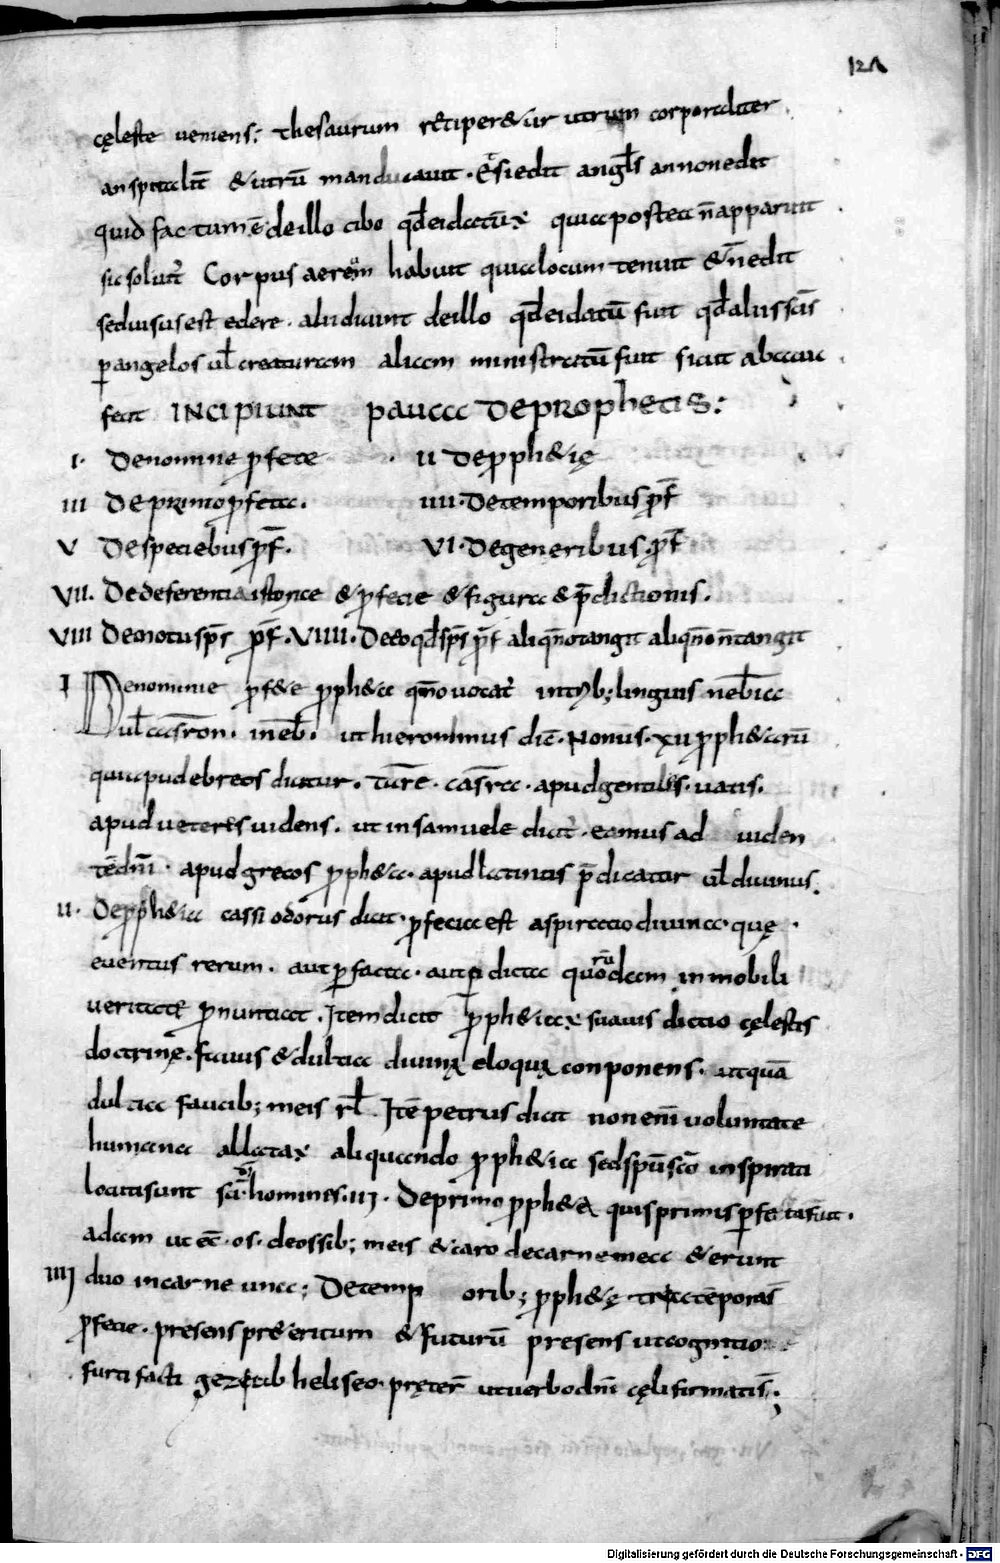 121
cęleste veniens; thesaurum reciper&ur utrum corporaliter
an spiritalit̄ & utrū manducavit. & si edit angl̄s an non edit
quid factum ē de illo cibo qd̄ ei datū quia postea n̄ apparuit
sic solvit̄ Corpus aereum habuit quia locum tenuit & n̄ edit
sed visus est edere. alii dicunt de illo qd̄ ei datū fuit qd̄ aliis scīs
p angelos ul̄ creaturam aliam ministratū fuit sicut abacuc
fecit INCIPIUNT PAUCA DE PROPHETIS:
I. De nomine pfetae II De pph&ię
III De primo pfeta. IIII. De temporibus pf̄
V De speciebus pf̄. VI. De generibus. pf̄
VII. De deferentia istoriae & pfecie & figura & p̄dictionis.
VIII De motu sps̄ pf̄. VIIII. De eo qd̄ sps̄ pf̄ aliqn̄o tangit aliqn̄o n̄ tangit
I De nomine pf&e pph&a qn̄o vocat̄ in tribꝫ linguis n̄ ebraica
ul̄ casr̄on. in eb̄. ut hieronimus dic̄. Nomus. xii pph&arū
qui apud ebreos dicitur. turc̄. casr̄a. apud gentiles. vatis.
apud veteres videns. ut in samuele dicit̄. eamus ad viden
tē dn̄i. apud grecos pph&a. apud latinus p̄dicatur ul̄ divinus.
II. De pph&ia cassiodorus dicit. pfecia est aspiratio divina. quę
eventus rerum. aut p facta. aut p dicta quorūdam inmobili
veritate pnuntiat. Item dicit pph&ia suavis dictio cęlestis
doctrinę. favus & dulcia divinę eloquę conponens. ut quā
dulcia faucibꝫ meis rl̄. Itē petrus dicit non enī voluntate
humana allata aliquando pph&ia sed spū scō inspirati
locuti sunt scī homines. III. De primo pph&a quis primus pfeta fuit.
adam ut ec̄. os. de ossibꝫ meis & caro de carne mea & erunt
IIII duo in carne una; De temp oribꝫ pph&ę tria tēpora s̄
pfecie. presens pr&eritum & futurū presens ut cognitio
furti facti gezetib heliseo. pręter̄ ut verbo dn̄i cęli firmati s̄;
Digitalisierung gefördert durch die Deutsche Forschungsgemeinschaft - DFG